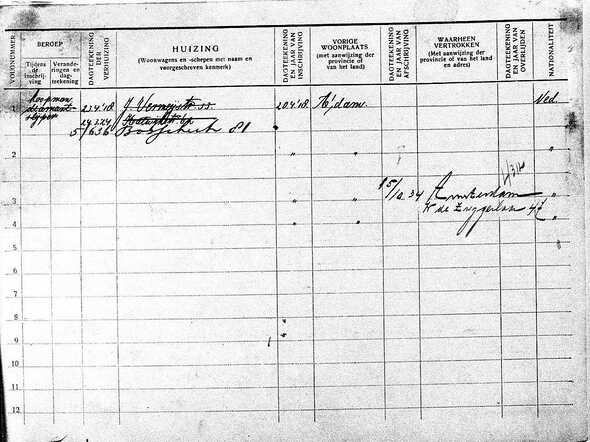 VOLGNUMMER
BEROEP
Tijdens de inschrijving
Veranderingen en dagteekening
DAGTEEKENING DER VERHUIZING
HUIZING
(Woonwagens en -schepen met naam en voorgeschreven kenmerk)
DAGTEEKENING EN JAAR VAN INSCHRIJVING
VORIGE WOONPLAATS
(met aanwijzing der provincie of van het land)
DAGTEEKENING EN JAAR VAN AFSCHRIJVING
WAARHEEN VERTROKKEN
(Met aanwijzing der provincie of van het land en adres)
DAGTEEKENING EN JAAR VAN OVERLIJDEN
NATIONALITEIT
1 koopman 23.4.'18 J. Vermeijstr 20.4.'18 A'dam Ned.
diamantslijper
24.3.24
5/6 36 81
2 " " "
15/10.34 Amsterdam
3 " " "
K de
4 " " "
5
6
7
8 "
9
10
11
12